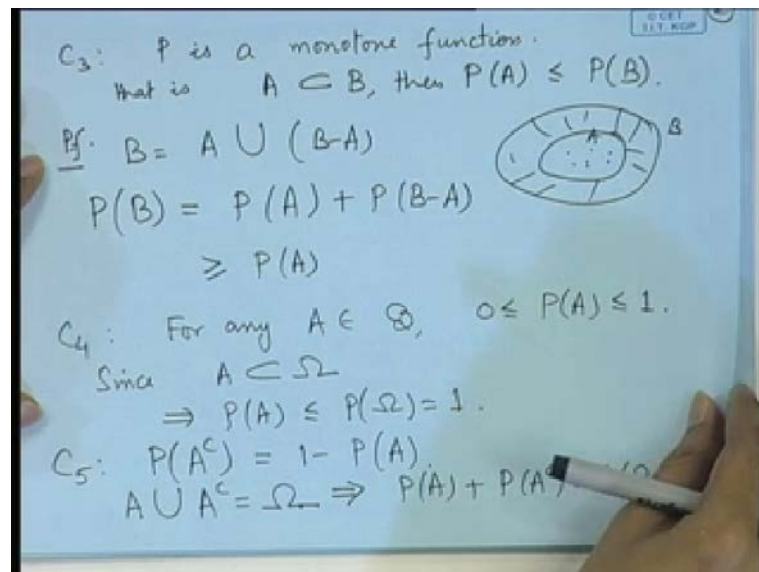 C3: P is a monotone function.
that is A ⊂ B, then P(A) ≤ P(B).
Pf. B = A ∪ (B-A)
A
B
P(B) = P(A) + P(B-A)
≥ P(A)
C4: For any A ∈ 𝓑, 0 ≤ P(A) ≤ 1.
Since A ⊂ Ω
⇒ P(A) ≤ P(Ω) = 1.
C5: P(Aᶜ) = 1 - P(A).
A ∪ Aᶜ = Ω ⇒ P(A) + P(Aᶜ